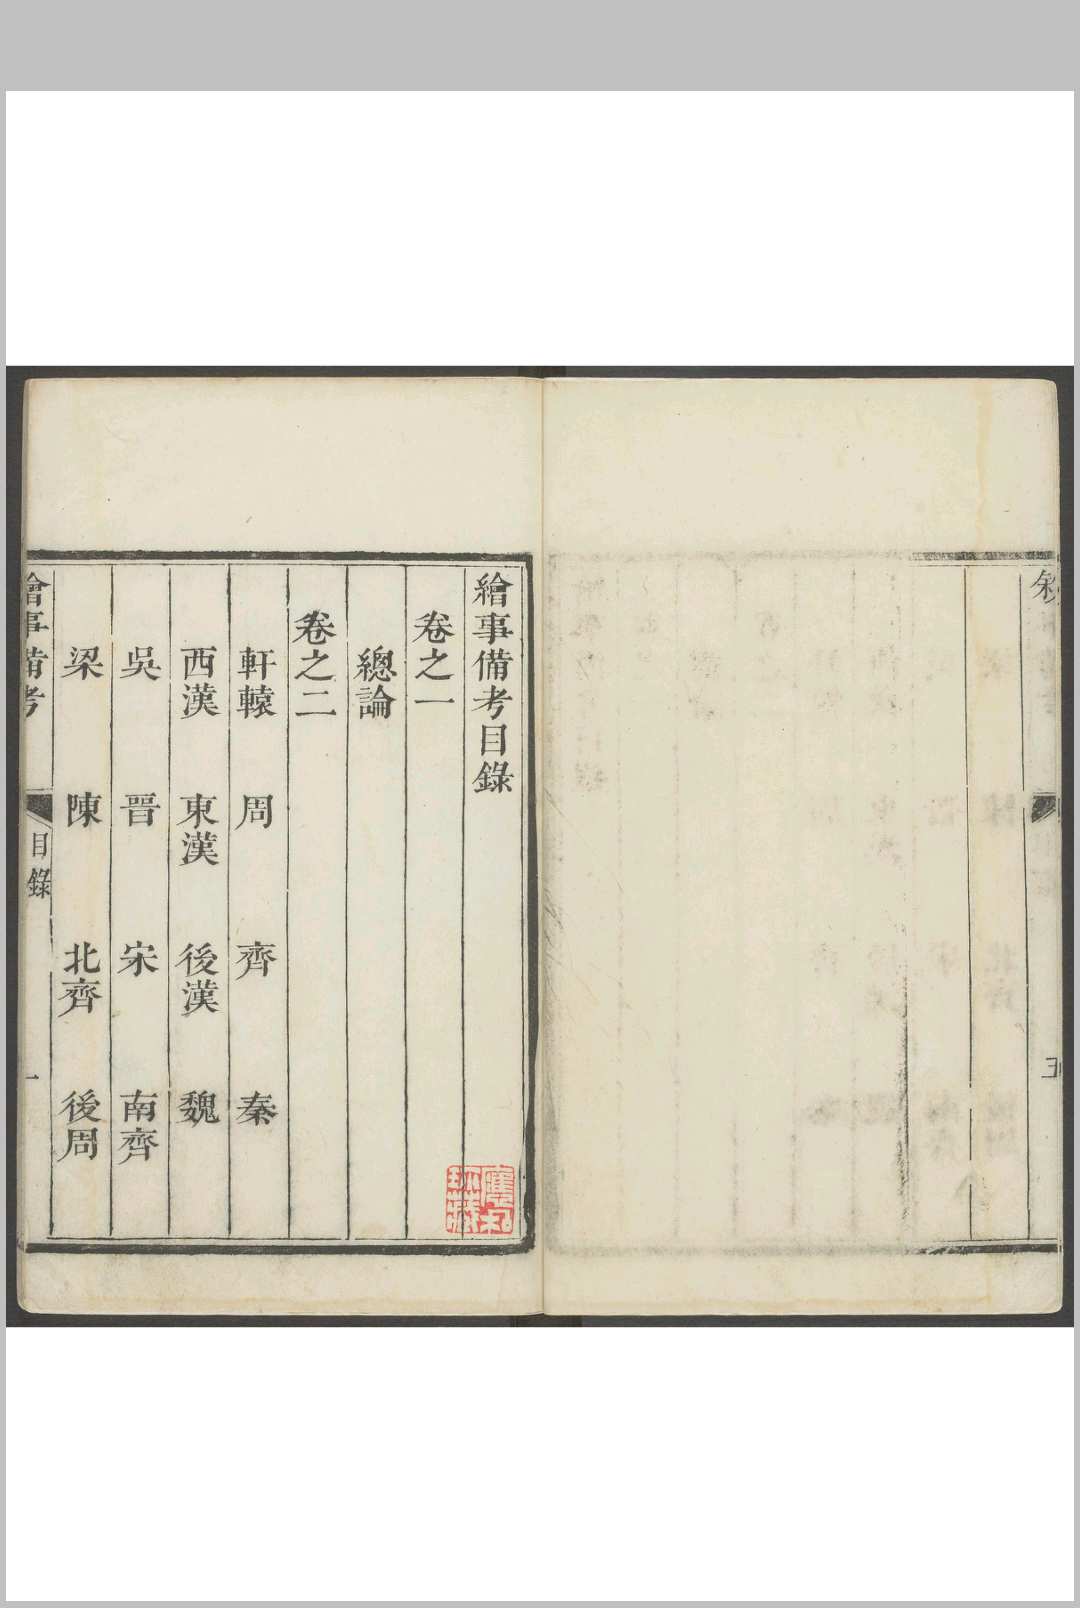 五
繪事備考目錄
卷之一
總論
卷之二
軒轅 周 齊 秦
西漢 東漢 後漢 魏
吳 晉 宋 南齊
梁 陳 北齊 後周
繪事備考 目錄 一